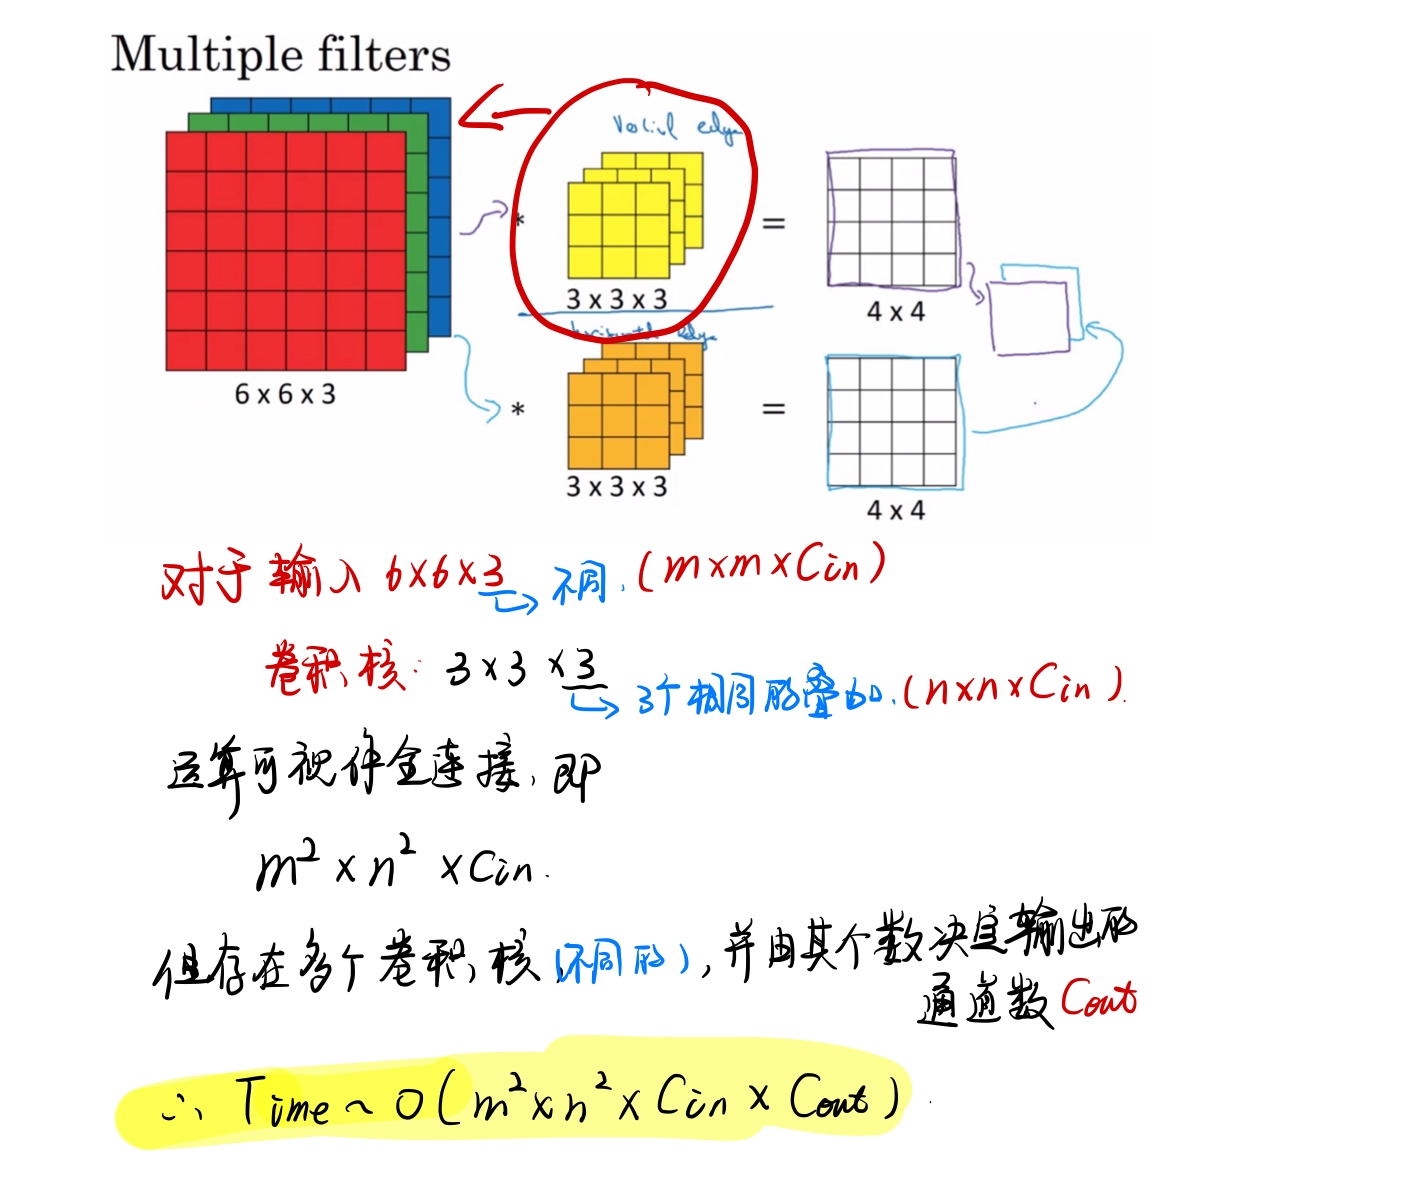 Multiple filters
edge
*
=
3 x 3 x 3
4 x 4
horizontal edge
6 x 6 x 3
*
=
3 x 3 x 3
4 x 4
对于输入 6×6×3 不同. (m×m×Cin)
卷积核: 3×3×3 3个相同的叠加. (n×n×Cin).
运算可视作全连接, 即
m² × n² × Cin.
但存在多个卷积核 (不同的), 并由其个数决定输出的
通道数 Cout
∴ Time ~ O(m²×n²×Cin×Cout).